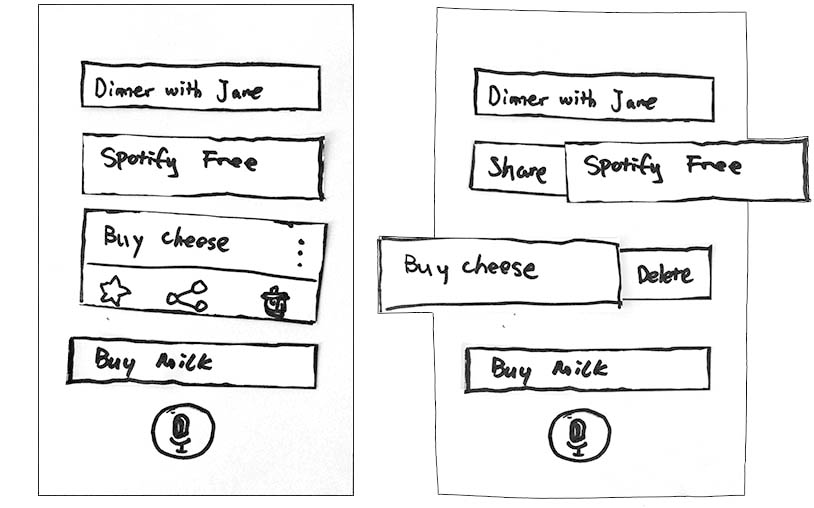 Dinner with Jane
Spotify Free
Buy cheese
Buy Milk
Dinner with Jane
Share
Spotify Free
Buy cheese
Delete
Buy Milk